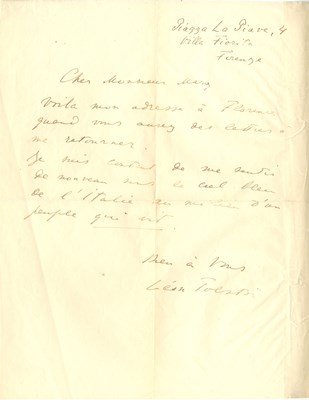 Piazza La Piave, 4
Villa Fiorita
Firenze
Cher Monsieur
Voila mon adresse à Florence
quand vous aurez des lettres à
me retourner.
Je suis content de me sentir
de nouveau sous le ciel bleu
de l'Italie au milieu d'un
peuple qui vit.
Bien à Vous
Léon Tolstoi